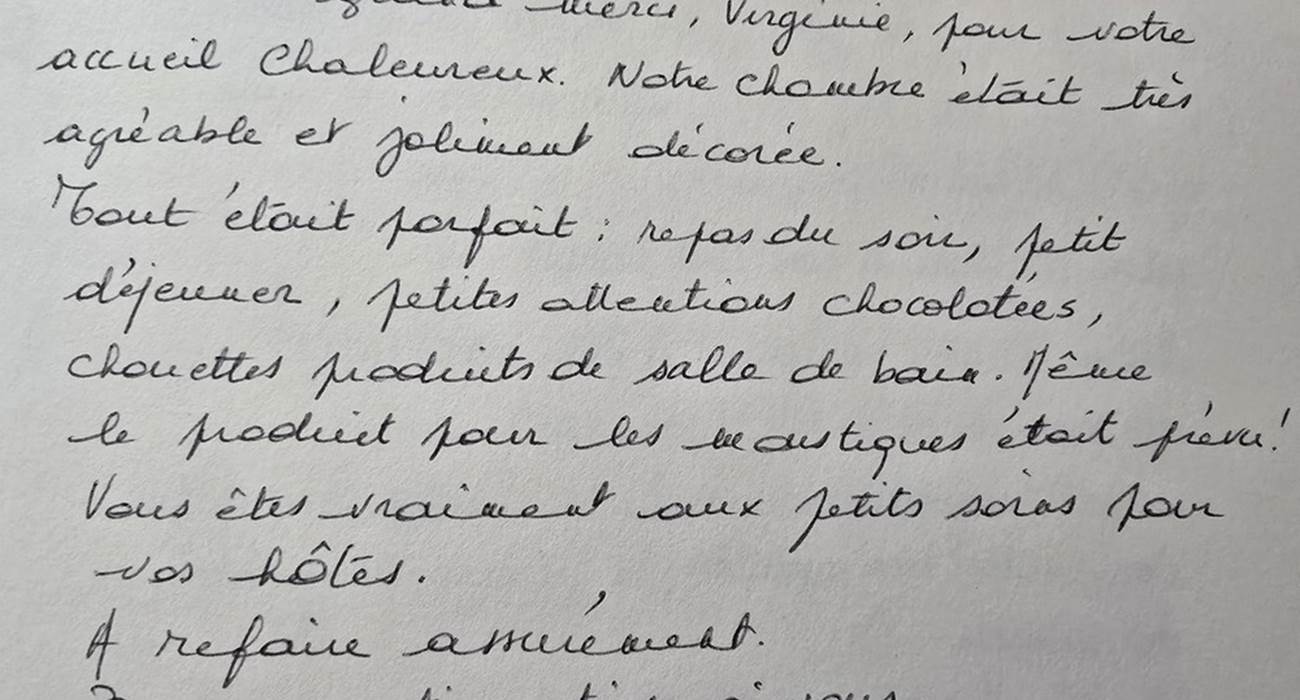 merci, Virginie, pour votre
accueil Chaleureux. Notre chambre était très
agréable et joliment décorée.
Tout était parfait : repas du soir, petit
déjeuner, petites attentions chocolatées,
chouettes produits de salle de bain. Même
le produit pour les moustiques était prévu !
Vous êtes vraiment aux petits soins pour
vos hôtes.
A refaire assurément.